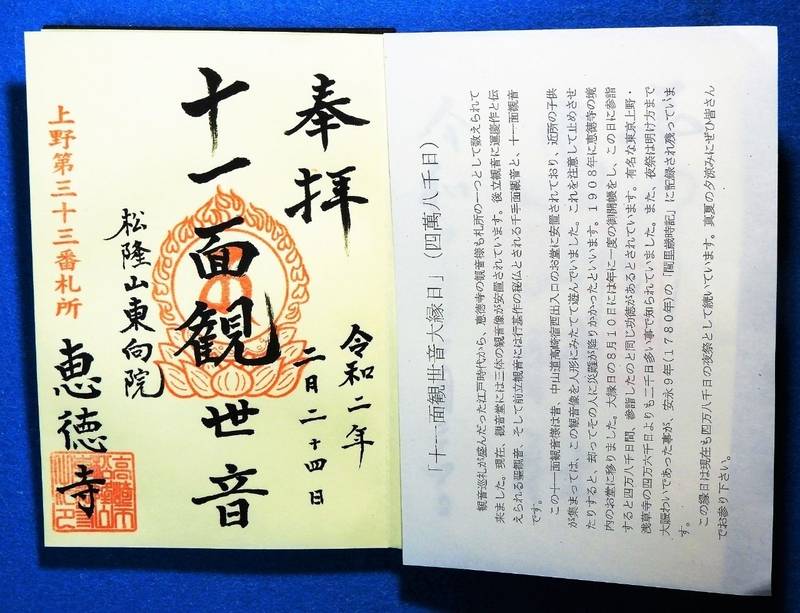 奉拝
令和二年
二月二十四日
十一面観世音
松隆山東向院
恵徳寺
上野第三十三番札所
「十一面観世音大縁日」(四萬八千日)
観音巡礼が盛んだった江戸時代から、恵徳寺の観音様も札所の一つとして数えられて
来ました。現在、観音堂には三体の観音像が安置されています。後立観音に運慶作と伝
えられる聖観音、そして前立観音には行基作の秘仏とされる千手面観音と、十一面観音
です。
この十一面観音様は昔、中山道高崎宿西出入口のお堂に安置されており、近所の子供
が集まっては、この観音像を人形にみたてて遊んでいました。これを注意して止めさせ
たりすると、却ってその人に災難が降りかかったといいます。1908年に恵徳寺の境
内のお堂に移りました。大縁日の8月10日には年に一度の御開帳をし、この日に参詣
すると四万八千日間、参詣したのと同じ功徳があるとされています。有名な東京上野・
浅草寺の四万六千日よりも二千日多い事で知られていました。また、夜祭は明け方まで
大賑わいであった事が、安永9年(1780年)の「閭里歳時記」に記録され残っていま
す。
この縁日は現在も四万八千日の夜祭として続いています。真夏の夕涼みにぜひ皆さん
でお参り下さい。